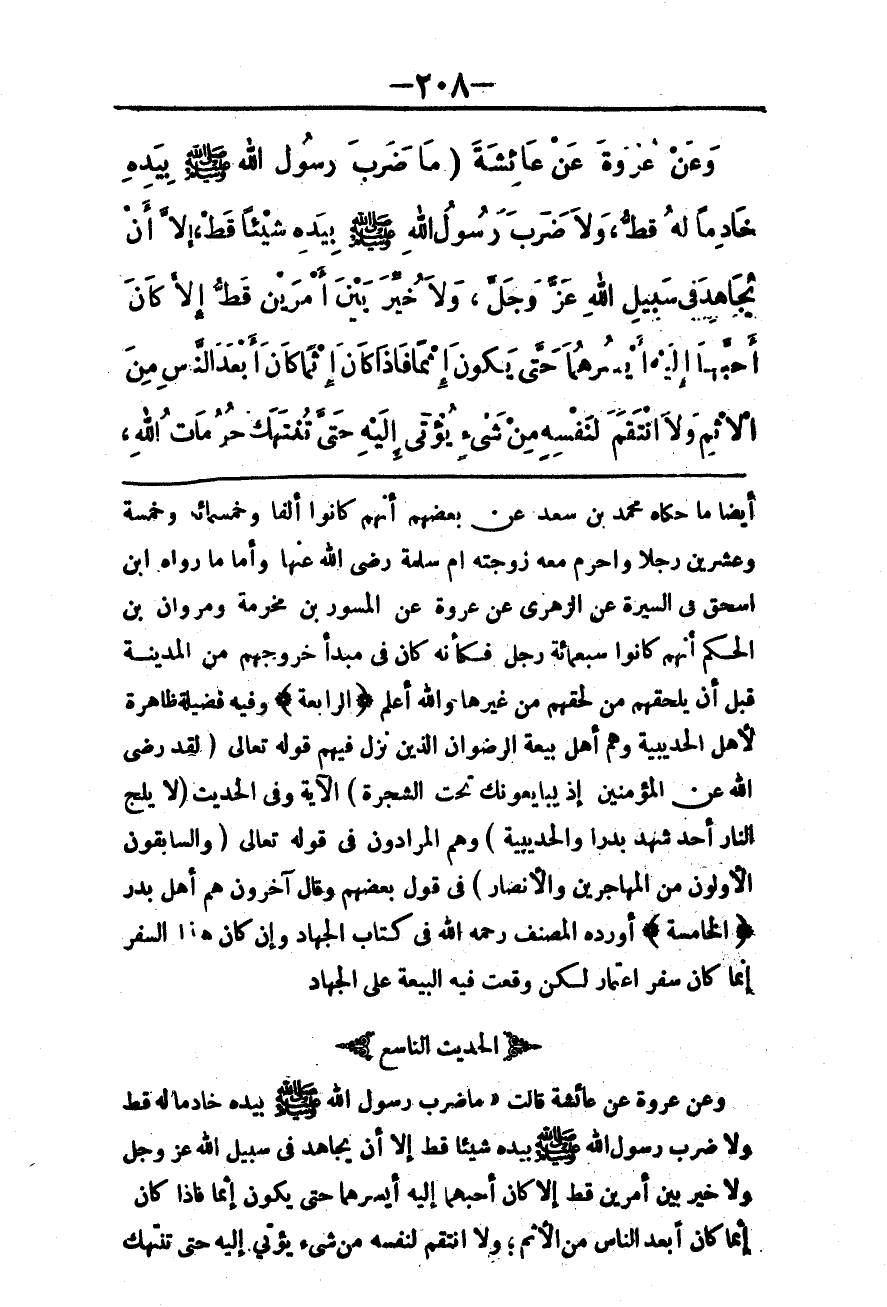 —٢٠٨—
وَعَنْ عُرْوَةَ عَنْ عَائِشَةَ ( مَا ضَرَبَ رسُول الله ﷺ بِيَدِهِ
خَادِماً لهُ قطُّ، وَلاَ ضَرَبَ رَسُولُ اللهِ ﷺ بِيَدِهِ شَيْئاً قَطْ، إلاَّ أَنْ
يُجَاهِدَ فى سَبِيلِ اللهِ عَزَّ وَجَلَّ ، وَلاَ خُيِّرَ بَيْنَ أَمْرَيْنِ قَطُّ إلاَ كَانَ
أَحَبَّهما إِلَيْهِ أَيْسرهُمَا حَتَّى يَكونَ إِثماً فَاذَا كانَ إِثْماً كَانَ أَبْعَدَ النَّاسِ مِنَ
الاْثْمِ وَلاَ انْتَقَمَ لنَفْسِهِ مِنْ شَىْءٍ يُؤْتَى إِلَيْهِ حَتَّى تُنْتَهَكَ حرُمَاتُ اللهِ ،
أيضا ما حكاه محمد بن سعد عن بعضهم أنهم كانوا ألفا وخمسمائه وخمسة
وعشرين رجلا واحرم معه زوجته ام سلمة رضى الله عنها وأما ما رواه ابن
اسحق فى السيرة عن الزهرى عن عروة عن المسور بن مخرمة ومروان بن
الحكم أنهم كانوا سبعمائة رجل فكأنه كان فى مبدأ خروجهم من المدينة
قبل أن يلحقهم من لحقهم من غيرها والله أعلم ﴿ الرابعة ﴾ وفيه فضيلة ظاهرة
لأهل الحديبية وهم أهل بيعة الرضوان الذين نزل فيهم قوله تعالى ( لقد رضى
الله عن المؤمنين إذ يبايعونك تحت الشجرة ) الآية وفى الحديث (لا يلج
النار أحد شهد بدرا والحديبية ) وهم المرادون فى قوله تعالى ( والسابقون
الأولون من المهاجرين والأنصار ) فى قول بعضهم وقال آخرون هم أهل بدر
﴿ الخامسة ﴾ أورده المصنف رحمه الله فى كتاب الجهاد وإن كان هذا السفر
إنما كان سفر اعتمار لكن وقعت فيه البيعة على الجهاد
﴿ الحديث التاسع ﴾
وعن عروة عن عائشة قالت « ماضرب رسول الله ﷺ بيده خادما له قط
ولا ضرب رسول الله ﷺ بيده شيئا قط إلا أن يجاهد فى سبيل الله عز وجل
ولا خير بين أمرين قط إلا كان أحبهما إليه أيسرهما حتى يكون إثما فاذا كان
إثما كان أبعد الناس من الأثم ؛ ولا انتقم لنفسه من شىء يؤتي إليه حتى تنتهك